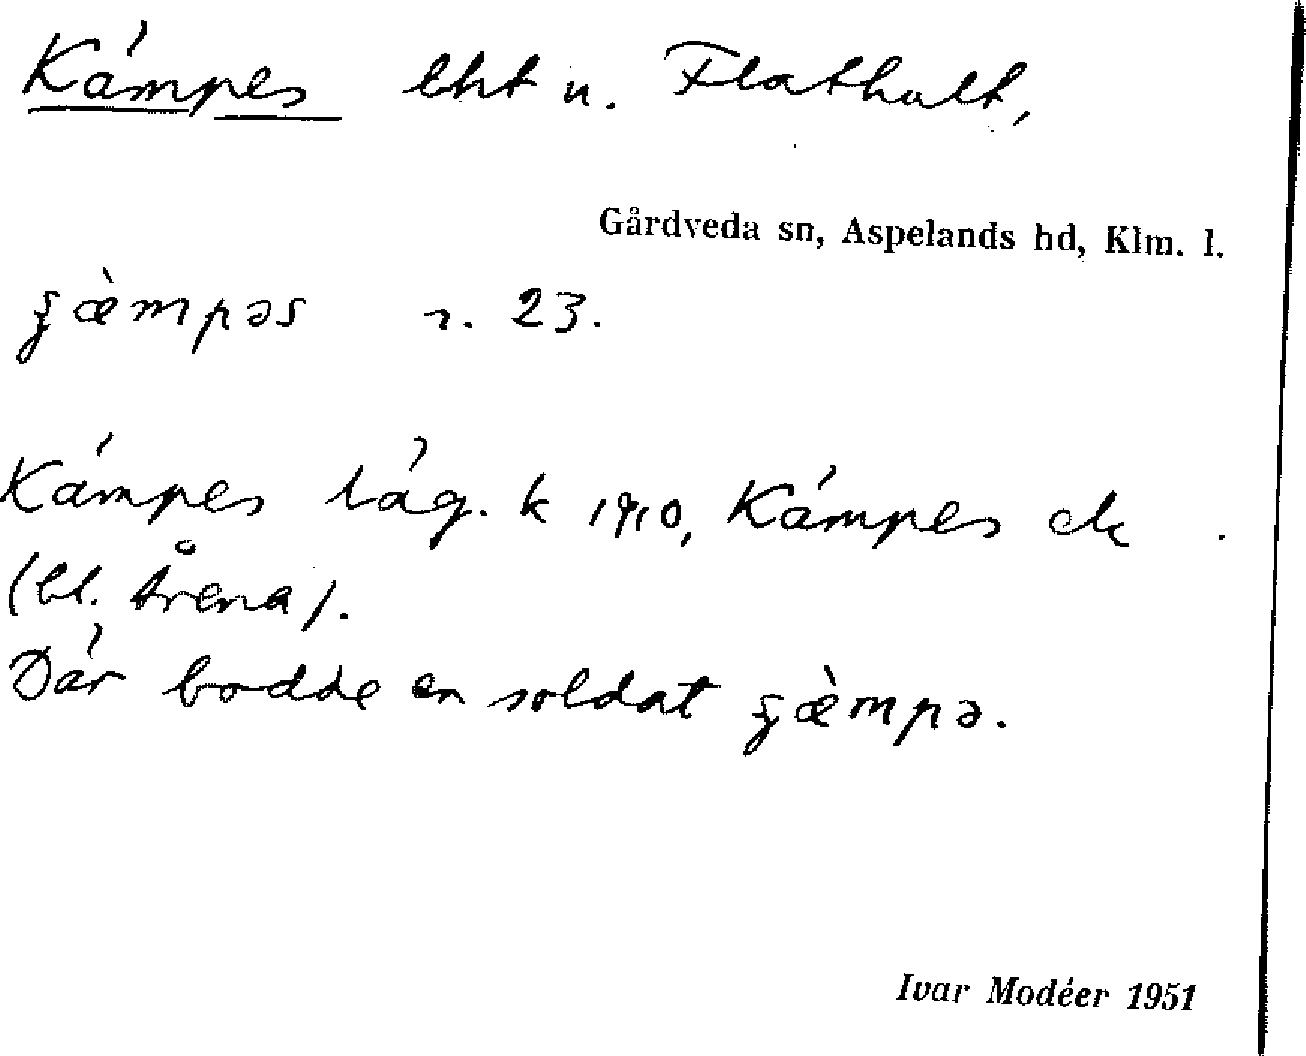 Kämpes lht u. Flathult,
Gårdveda sn, Aspelands hd, Klm. l.
ɕæ̀mpəs r. 23.
Kämpes läg. k 1910, Kämpes ek
(bl. träna).
Där bodde en soldat ɕæ̀mpə.
Ivar Modéer 1951